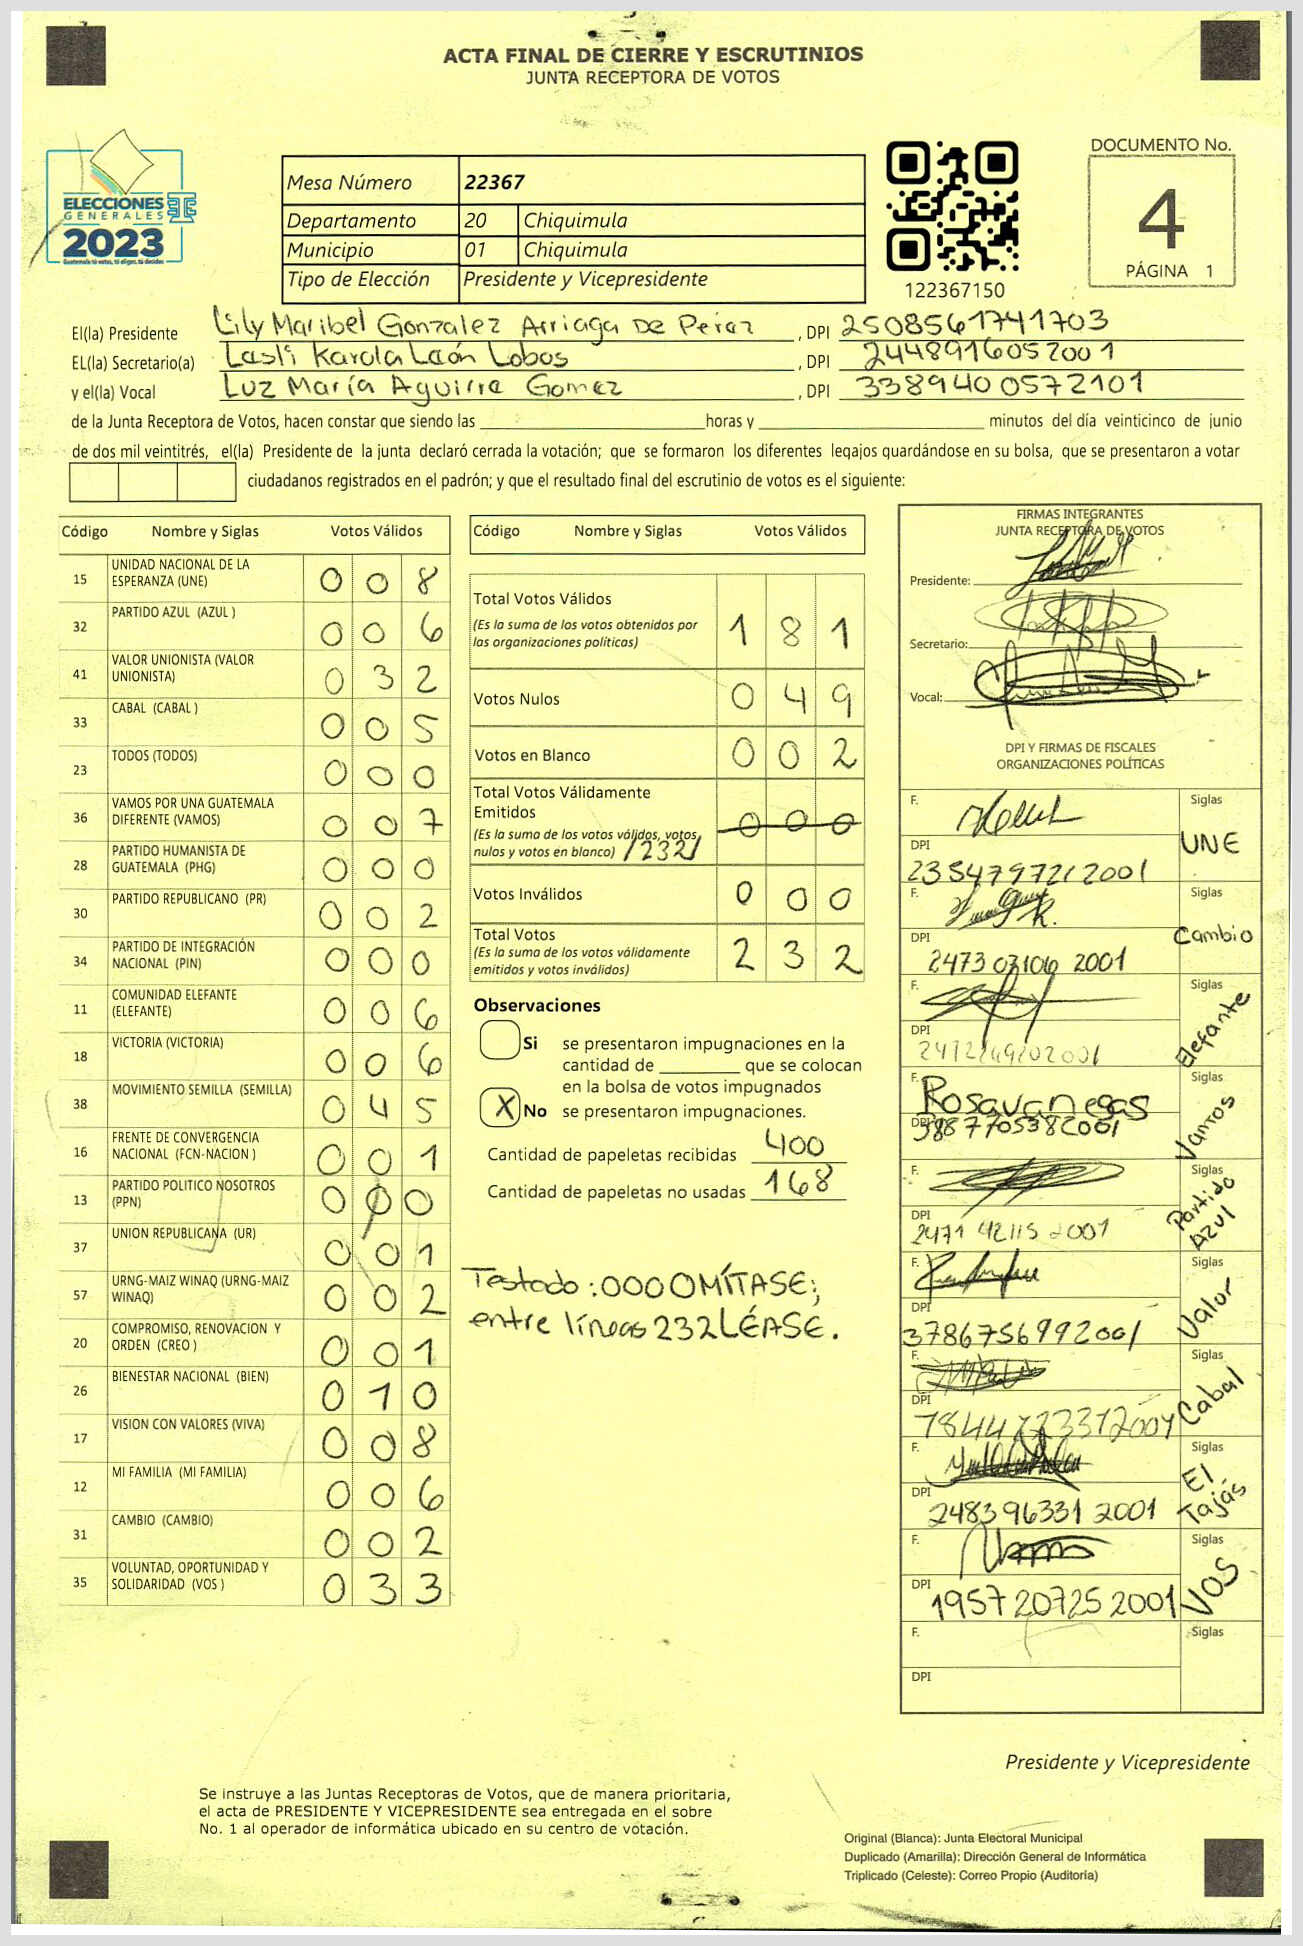 ACTA FINAL DE CIERRE Y ESCRUTINIOS
JUNTA RECEPTORA DE VOTOS
ELECCIONES
GENERALES
2023
Guatemala tú votas, tú eliges, tú decides
Mesa Número 22367
Departamento 20 Chiquimula
Municipio 01 Chiquimula
Tipo de Elección Presidente y Vicepresidente
122367150
DOCUMENTO No.
4
PÁGINA 1
El(la) Presidente Lily Maribel Gonzalez Arriaga De Pérez, DPI 2508561741703
EL(la) Secretario(a) Lesli Karola León Lobos, DPI 2448916052001
y el(la) Vocal Luz María Aguirre Gomez, DPI 3389400572101
de la Junta Receptora de Votos, hacen constar que siendo las horas y minutos del día veinticinco de junio
de dos mil veintitrés, el(la) Presidente de la junta declaró cerrada la votación; que se formaron los diferentes legajos guardándose en su bolsa, que se presentaron a votar
ciudadanos registrados en el padrón; y que el resultado final del escrutinio de votos es el siguiente:
Código Nombre y Siglas Votos Válidos
15 UNIDAD NACIONAL DE LA ESPERANZA (UNE) 0 0 8
32 PARTIDO AZUL (AZUL ) 0 0 6
41 VALOR UNIONISTA (VALOR UNIONISTA) 0 3 2
33 CABAL (CABAL ) 0 0 5
23 TODOS (TODOS) 0 0 0
36 VAMOS POR UNA GUATEMALA DIFERENTE (VAMOS) 0 0 7
28 PARTIDO HUMANISTA DE GUATEMALA (PHG) 0 0 0
30 PARTIDO REPUBLICANO (PR) 0 0 2
34 PARTIDO DE INTEGRACIÓN NACIONAL (PIN) 0 0 0
11 COMUNIDAD ELEFANTE (ELEFANTE) 0 0 6
18 VICTORIA (VICTORIA) 0 0 6
38 MOVIMIENTO SEMILLA (SEMILLA) 0 4 5
16 FRENTE DE CONVERGENCIA NACIONAL (FCN-NACION ) 0 0 1
13 PARTIDO POLITICO NOSOTROS (PPN) 0 0 0
37 UNION REPUBLICANA (UR) 0 0 1
57 URNG-MAIZ WINAQ (URNG-MAIZ WINAQ) 0 0 2
20 COMPROMISO, RENOVACION Y ORDEN (CREO ) 0 0 1
26 BIENESTAR NACIONAL (BIEN) 0 1 0
17 VISION CON VALORES (VIVA) 0 0 8
12 MI FAMILIA (MI FAMILIA) 0 0 6
31 CAMBIO (CAMBIO) 0 0 2
35 VOLUNTAD, OPORTUNIDAD Y SOLIDARIDAD (VOS ) 0 3 3
Código Nombre y Siglas Votos Válidos
Total Votos Válidos 1 8 1
(Es la suma de los votos obtenidos por
las organizaciones políticas)
Votos Nulos 0 4 9
Votos en Blanco 0 0 2
Total Votos Válidamente
Emitidos 0 0 0
(Es la suma de los votos válidos, votos
nulos y votos en blanco) /232/
Votos Inválidos 0 0 0
Total Votos 2 3 2
(Es la suma de los votos válidamente
emitidos y votos inválidos)
Observaciones
Si se presentaron impugnaciones en la
cantidad de que se colocan
en la bolsa de votos impugnados
X No se presentaron impugnaciones.
Cantidad de papeletas recibidas 400
Cantidad de papeletas no usadas 168
Testado: 000 OMÍTASE;
entre líneas 232 LÉASE.
FIRMAS INTEGRANTES
JUNTA RECEPTORA DE VOTOS
Presidente:
Secretario:
Vocal:
DPI Y FIRMAS DE FISCALES
ORGANIZACIONES POLÍTICAS
F. Siglas
UNE
DPI
2354797212001
F. Siglas
Cambio
DPI
2473 03106 2001
F. Siglas
Elefante
DPI
F. Rosavanegas Siglas
Vamos
DPI
F. Siglas
Partido
Azul
DPI
2471 42115 2001
F. Siglas
Valor
DPI
3786756992001
F. Siglas
Cabal
DPI
F. Siglas
El
Tajás
DPI
2483 96331 2001
F. Siglas
VOS
DPI
1957 20725 2001
F. Siglas
DPI
Presidente y Vicepresidente
Se instruye a las Juntas Receptoras de Votos, que de manera prioritaria,
el acta de PRESIDENTE Y VICEPRESIDENTE sea entregada en el sobre
No. 1 al operador de informática ubicado en su centro de votación.
Original (Blanca): Junta Electoral Municipal
Duplicado (Amarilla): Dirección General de Informática
Triplicado (Celeste): Correo Propio (Auditoría)